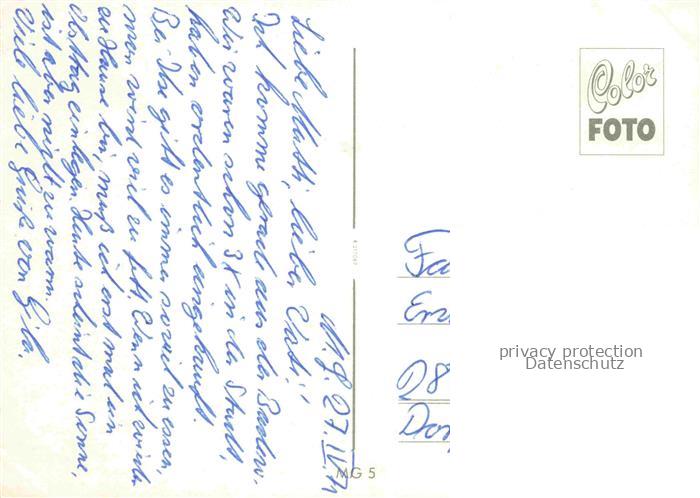 M.G. 27. IV. 71
Liebe Mutti, lieber Vati!
Ich komme gerade aus der Badew.
Wir waren schon 3X in der Stadt,
haben ordentlich eingekauft.
Bei Ilse gibt es immer soviel zu essen,
man wird viel zu fett. Wenn ich wieder
zu Hause bin, muß ich erst mal ein
Obsttag einlegen. Heute scheint die Sonne,
ist aber nicht zu warm.
Viele liebe Grüße von Gila.
Color
FOTO
Fa
28
MG 5
privacy protection
Datenschutz